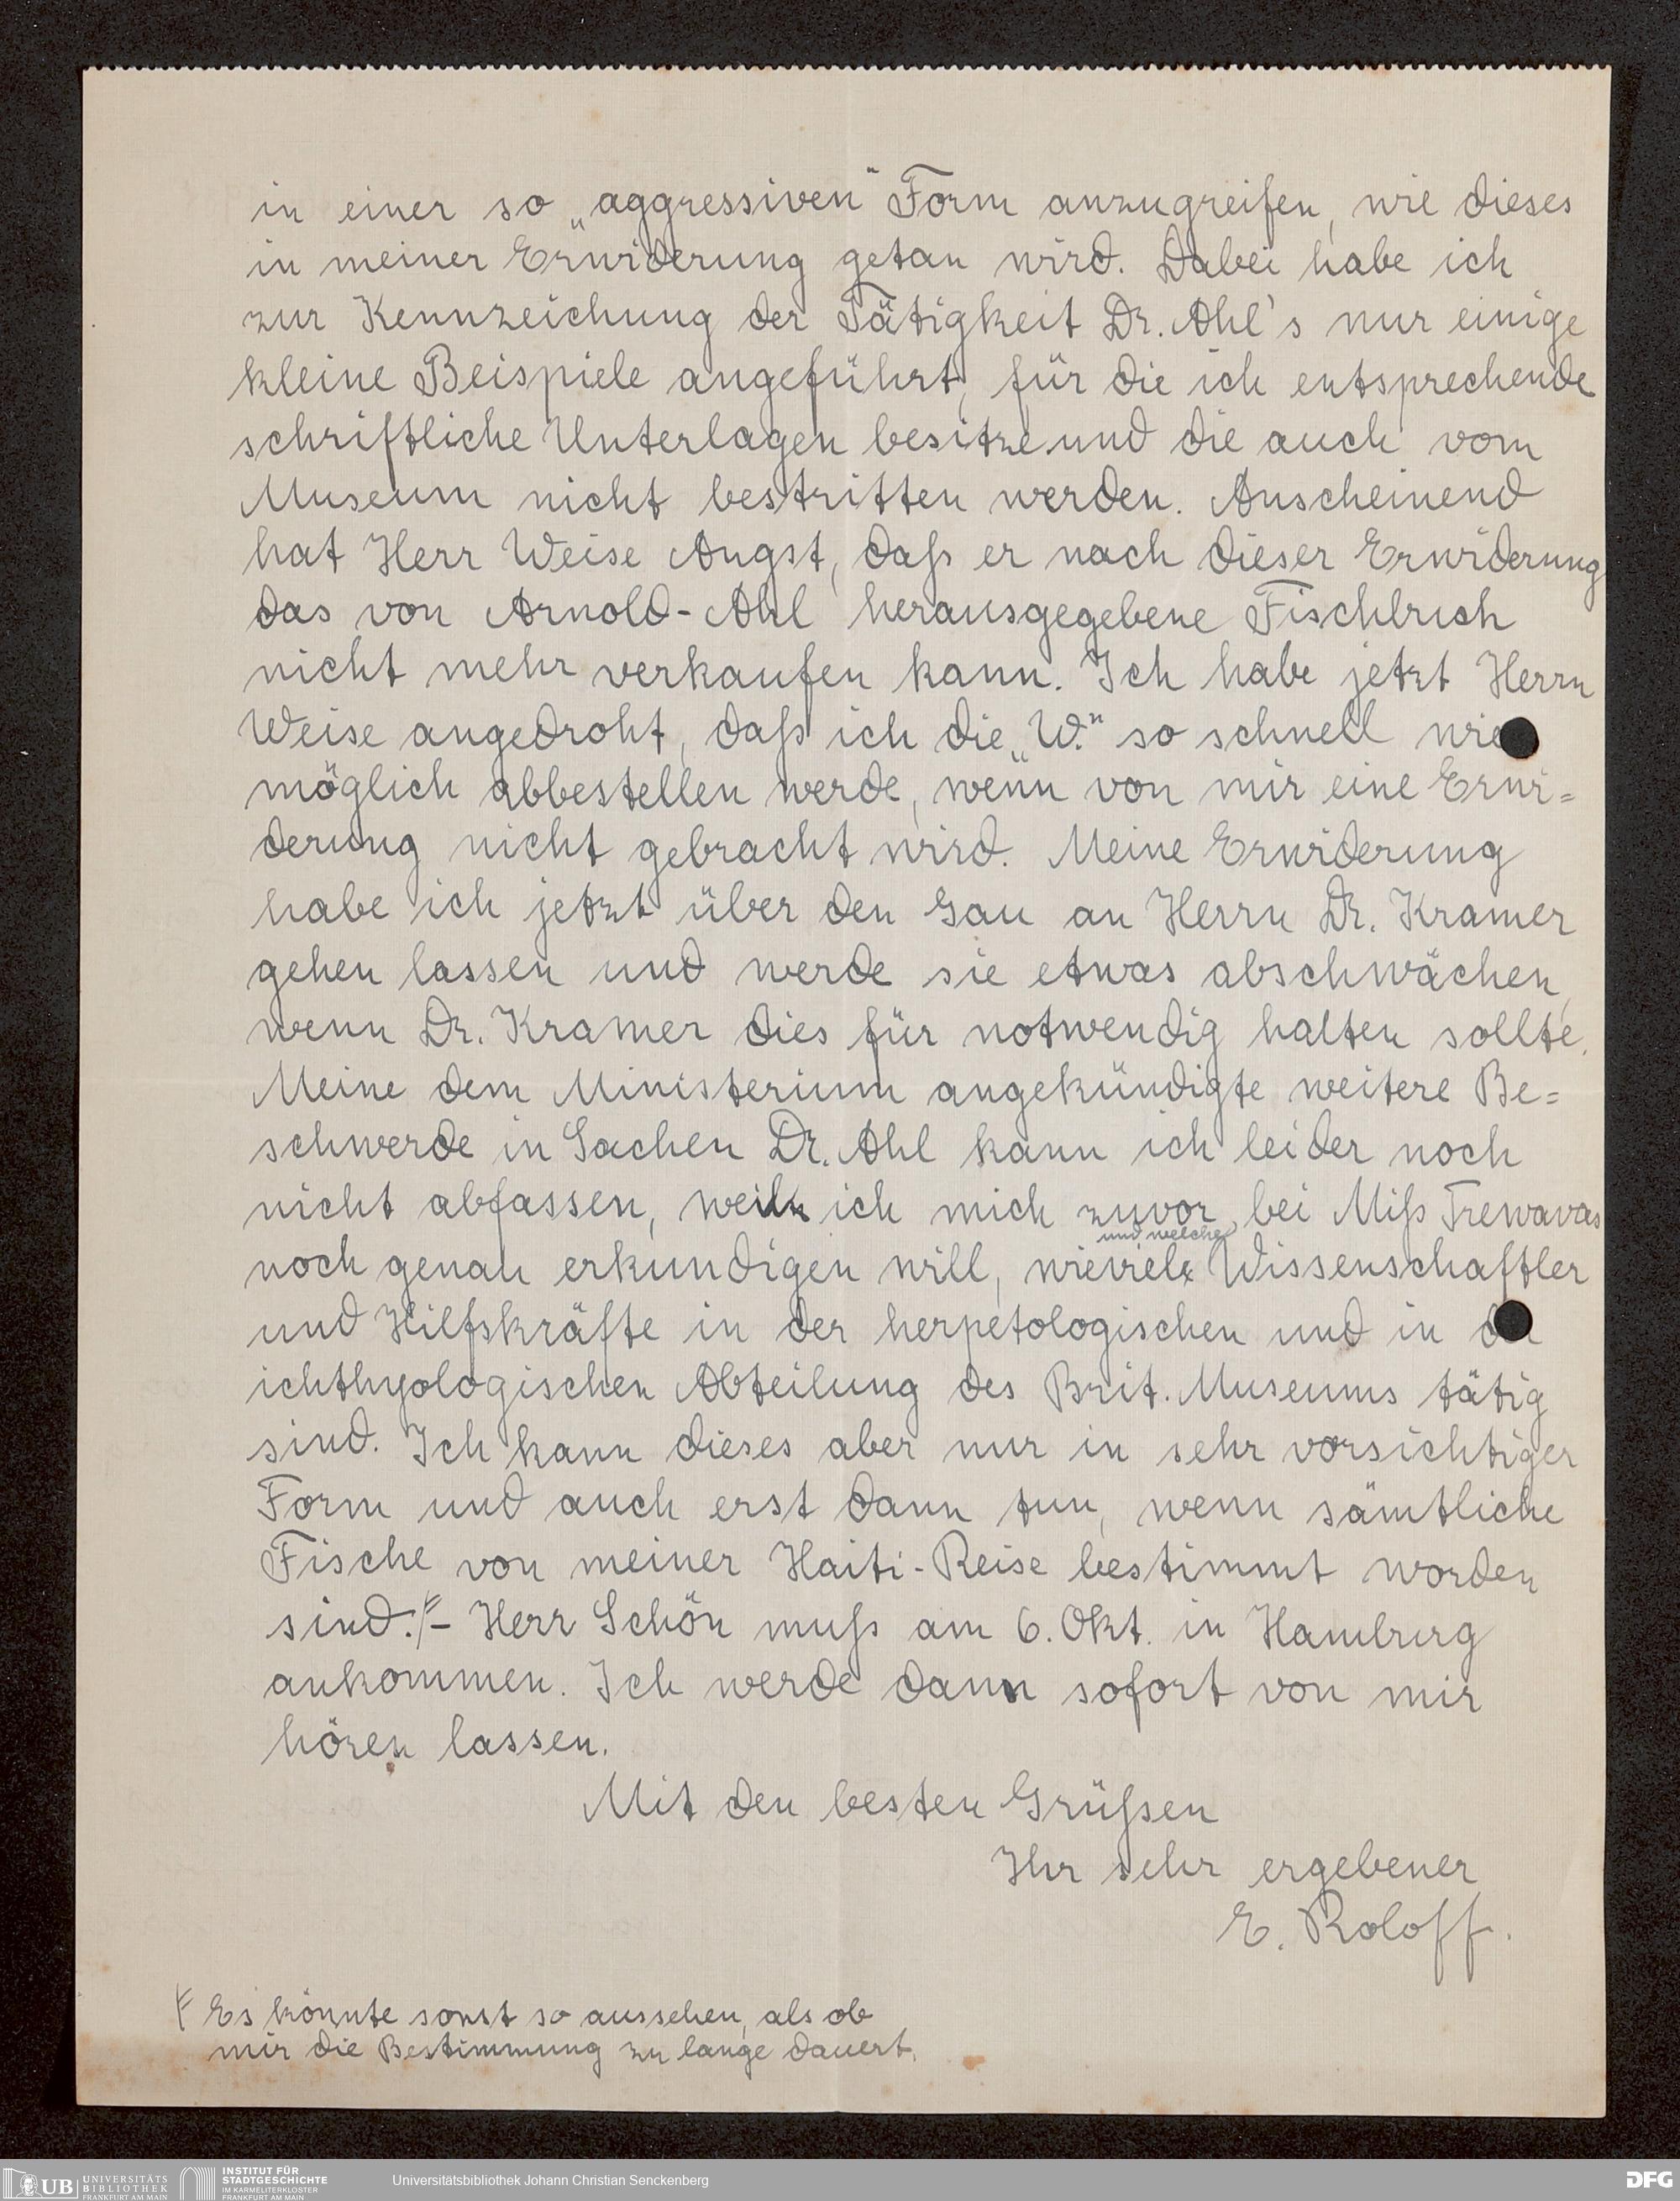 in einer so „aggressiven" Form anzugreifen, wie dieses
in meiner Erwiderung getan wird. Dabei habe ich
zur Kennzeichung der Tätigkeit Dr. Ahl's nur einige
kleine Beispiele angeführt, für die ich entsprechende
schriftliche Unterlagen besitze und die auch vom
Museum nicht bestritten werden. Anscheinend
hat Herr Weise Angst, daß er nach dieser Erwiderung
das von Arnold-Ahl herausgegebene Fischbuch
nicht mehr verkaufen kann. Ich habe jetzt Herrn
Weise angedroht, daß ich die „W." so schnell wie
möglich abbestellen werde, wenn von mir eine Erwi=
derung nicht gebracht wird. Meine Erwiderung
habe ich jetzt über den Gau an Herrn Dr. Kramer
gehen lassen und werde sie etwas abschwächen,
wenn Dr. Kramer dies für notwendig halten sollte.
Meine dem Ministerium angekündigte weitere Be=
schwerde in Sachen Dr. Ahl kann ich leider noch
nicht abfassen, weil ich mich zuvor bei Miß Trewavas
und welche
noch genau erkundigen will, wieviele Wissenschaftler
und Hilfskräfte in der herpetologischen und in der
ichthyologischen Abteilung des Brit. Museums tätig
sind. Ich kann dieses aber nur in sehr vorsichtiger
Form und auch erst dann tun, wenn sämtliche
Fische von meiner Haiti-Reise bestimmt worden
sind. – Herr Schön muß am 6. Okt. in Hamburg
ankommen. Ich werde dann sofort von mir
hören lassen.
Mit den besten Grüßen
Ihr sehr ergebener
E. Roloff.
Es könnte sonst so aussehen, als ob
mir die Bestimmung zu lange dauert.
UB UNIVERSITÄTS
BIBLIOTHEK
FRANKFURT AM MAIN
INSTITUT FÜR
STADTGESCHICHTE
IM KARMELITERKLOSTER
FRANKFURT AM MAIN
Universitätsbibliothek Johann Christian Senckenberg
DFG